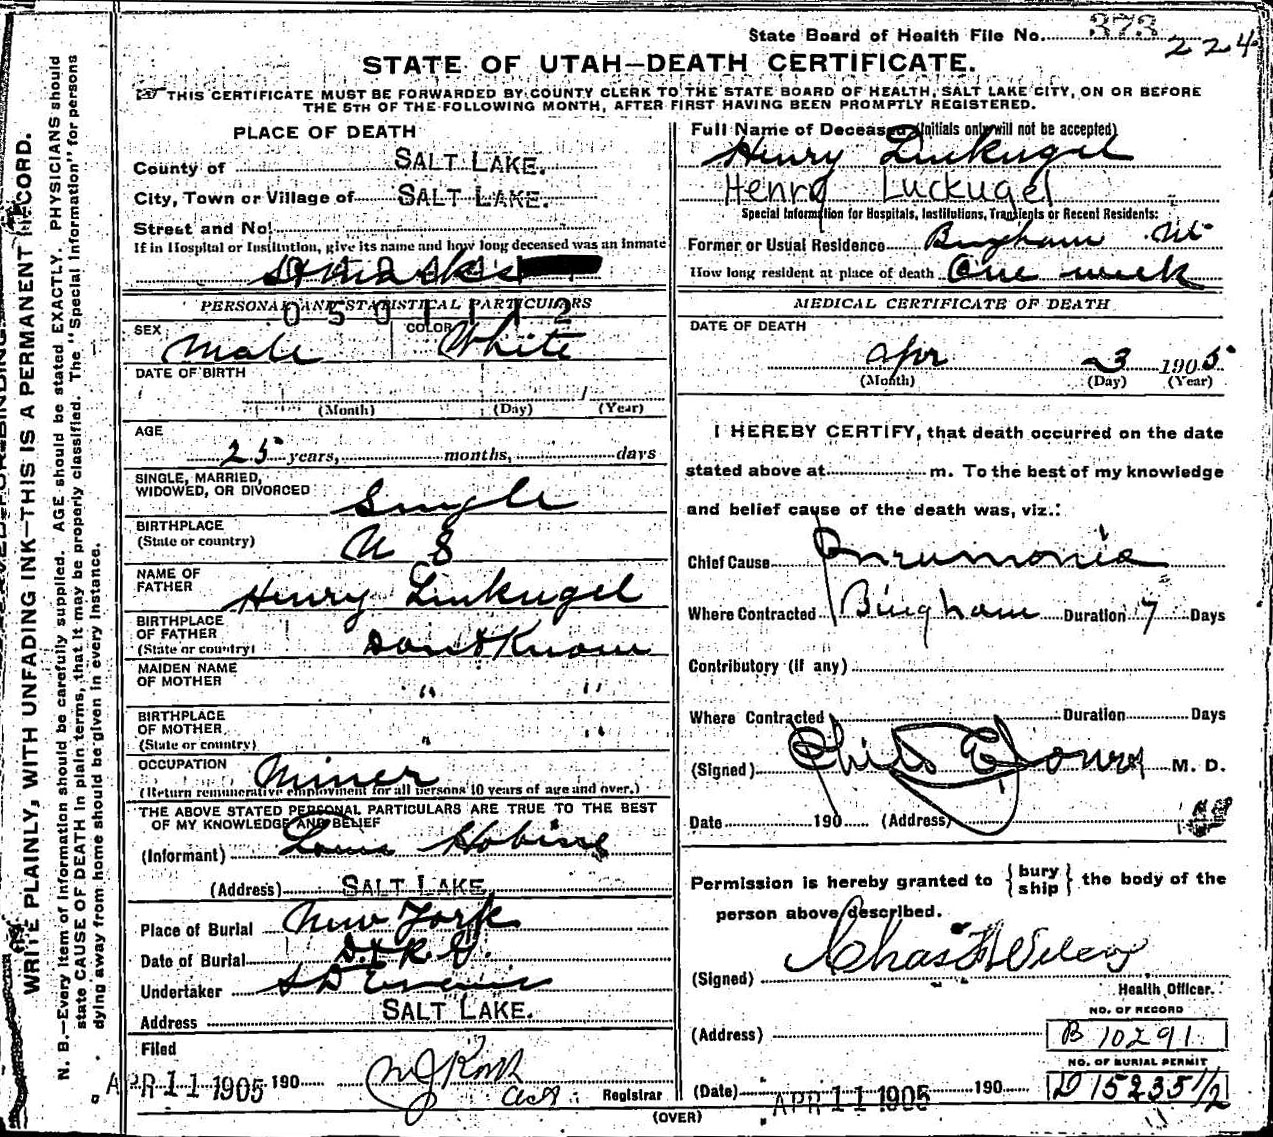 State Board of Health File No. 373 224
STATE OF UTAH—DEATH CERTIFICATE.
THIS CERTIFICATE MUST BE FORWARDED BY COUNTY CLERK TO THE STATE BOARD OF HEALTH, SALT LAKE CITY, ON OR BEFORE
THE 5TH OF THE FOLLOWING MONTH, AFTER FIRST HAVING BEEN PROMPTLY REGISTERED.
WRITE PLAINLY, WITH UNFADING INK—THIS IS A PERMANENT RECORD.
N. B.—Every item of information should be carefully supplied. AGE should be stated EXACTLY. PHYSICIANS should
state CAUSE OF DEATH in plain terms, that it may be properly classified. The "Special Information" for persons
dying away from home should be given in every instance.
PLACE OF DEATH
County of SALT LAKE.
City, Town or Village of SALT LAKE.
Street and No.
If in Hospital or Institution, give its name and how long deceased was an inmate
St Mark's
PERSONAL AND STATISTICAL PARTICULARS
0501112
SEX Male COLOR White
DATE OF BIRTH
(Month) (Day) (Year)
AGE
25 years, months, days
SINGLE, MARRIED,
WIDOWED, OR DIVORCED Single
BIRTHPLACE
(State or country) U S
NAME OF
FATHER Henry Linkugel
BIRTHPLACE
OF FATHER
(State or country) Dont Know
MAIDEN NAME
OF MOTHER " "
BIRTHPLACE
OF MOTHER
(State or country) " "
OCCUPATION Miner
(Return remunerative employment for all persons 10 years of age and over.)
THE ABOVE STATED PERSONAL PARTICULARS ARE TRUE TO THE BEST
OF MY KNOWLEDGE AND BELIEF
(Informant) Louis
(Address) SALT LAKE.
Place of Burial New York
Date of Burial
Undertaker S D Evans
Address SALT LAKE.
Filed
APR 11 1905 190 Registrar
(OVER)
Full Name of Deceased (Initials only will not be accepted)
Henry Linkugel
Henry Luckugel
Special Information for Hospitals, Institutions, Transients or Recent Residents:
Former or Usual Residence Bingham Ut
How long resident at place of death One week
MEDICAL CERTIFICATE OF DEATH
DATE OF DEATH
Apr 3 1905
(Month) (Day) (Year)
I HEREBY CERTIFY, that death occurred on the date
stated above at m. To the best of my knowledge
and belief cause of the death was, viz.:
Chief Cause Pneumonia
Where Contracted Bingham Duration 7 Days
Contributory (if any)
Where Contracted Duration Days
(Signed) M. D.
Date 190 (Address)
Permission is hereby granted to {bury ship} the body of the
person above described.
(Signed) Chas
Health Officer.
NO. OF RECORD
(Address) B 10291
NO. OF BURIAL PERMIT
(Date) APR 11 1905 190 D 15235 1/2